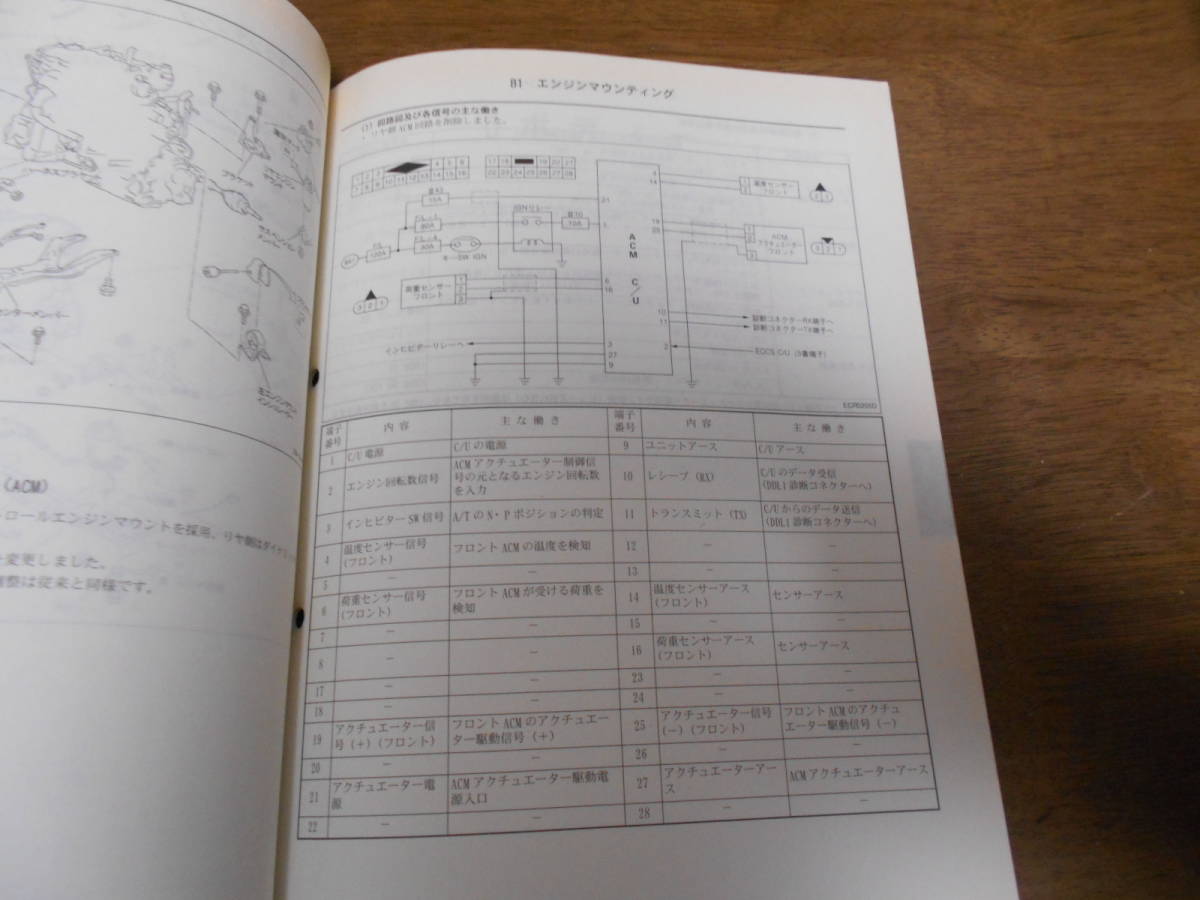 ブラケット
センターメンバー
(ACM)
ロールエンジンマウントを採用。リヤ側は
変更しました。
調整は従来と同様です。
B1 エンジンマウンティング
(1) 回路図及び各信号の主な働き
・リヤ側ACM回路を削除しました。
4 5 6
1 2 3
7 8 9 10 11 12 13 14 15 16
17 18 19 22 27
15A
IGNリレー
10A
80A
40A
120A
キーSW IGN
荷重センサー
フロント
1
2
3
3 2 1
インヒビターリレーへ
21
1
6
16
3
27
9
ACM C/U
4
14
19
10
11
2
温度センサー
フロント
2 1
ACM
アクチュエーター
フロント
1
2
3
診断コネクターRX端子へ
診断コネクターTX端子へ
ECCS C/U
端子番号 内容 主な働き 端子番号 内容 主な働き
1 C/U電源 C/Uの電源 9 ユニットアース C/Uアース
2 エンジン回転数信号 ACMアクチュエーター制御信号の元となるエンジン回転数を入力 10 レシーブ (RX) C/Uのデータ受信(DDL1診断コネクターへ)
3 インヒビターSW信号 A/TのN・Pポジションの判定 11 トランスミット (TX) C/Uからのデータ送信(DDL1診断コネクターへ)
4 温度センサー信号(フロント) フロントACMの温度を検知 12 − −
5 − − 13 − −
6 荷重センサー信号(フロント) フロントACMが受ける荷重を検知 14 温度センサーアース(フロント) センサーアース
7 − − 15 − −
8 − − 16 荷重センサーアース(フロント) センサーアース
17 − − 23 − −
18 − − 24 − −
19 アクチュエーター信号(+)(フロント) フロントACMのアクチュエーター駆動信号(+) 25 アクチュエーター信号(−)(フロント) フロントACMのアクチュエーター駆動信号(−)
20 − − 26 − −
21 アクチュエーター電源 ACMアクチュエーター駆動電源入口 27 アクチュエーターアース ACMアクチュエーターアース
22 − − 28 − −